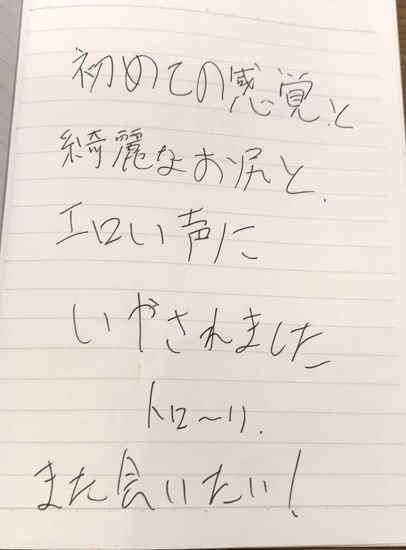 初めての感覚と
綺麗なお尻と、
エロい声に
いやされました
トロ〜リ.
また会いたい!